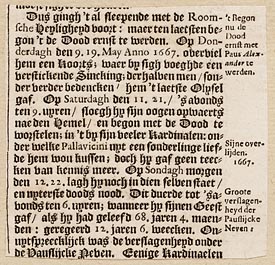 Dus gingh 't al sleepende met de Room-
sche Heyligheyd voort: maer ten laetsten be-
gon 't de Dood ernst te werden. Op Don-
derdagh den 9, 19. May Anno 1667. overbiel
hem een Koorts; waer by sigh voeghde een
verstickende Sincking; derhalven men / son-
der verder bedencken / hem 't laetste Olysel
gaf. Op Saturdagh den 11. 21. / 's avonds
ten 9. uyren / sloegh hy sijn oogen opwaerts
nae den Hemel / en begon met de Dood te
worstelen: in 't by sijn veeler Kardinalen: on-
der welke Pallavicini nyt een sonderlinge lief-
de hem won kussen; doch hy gaf geen teec-
ken van kennis meer. Op Sondagh morgen
den 12. 22. lagh hy noch in dien selven staet /
en nyterste doods nood. Dit duerde tot 's a-
vonds ten 6. uyren; wanneer hy sijnen Geest
gaf / als hy had geleefd 68. jaren 4. maen-
den: geregeerd 12. jaren 6. weecken. On-
uytspreecklijck was de verslagenheyd onder
de Pauslijcke Neven. Eenige Kardinaelen
't Begon
nu de
Dood
ernst met
Paus Alex-
ander te
werden.
Sijne over-
lijden.
1667.
Groote
verslagen-
heyd der
Pauslijcke
Neven: